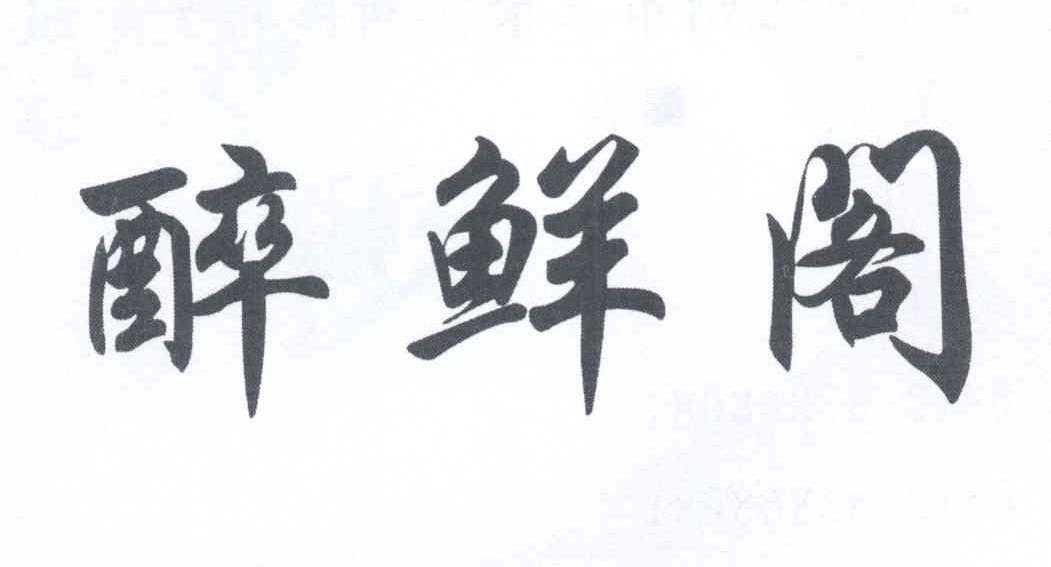 醉鲜阁